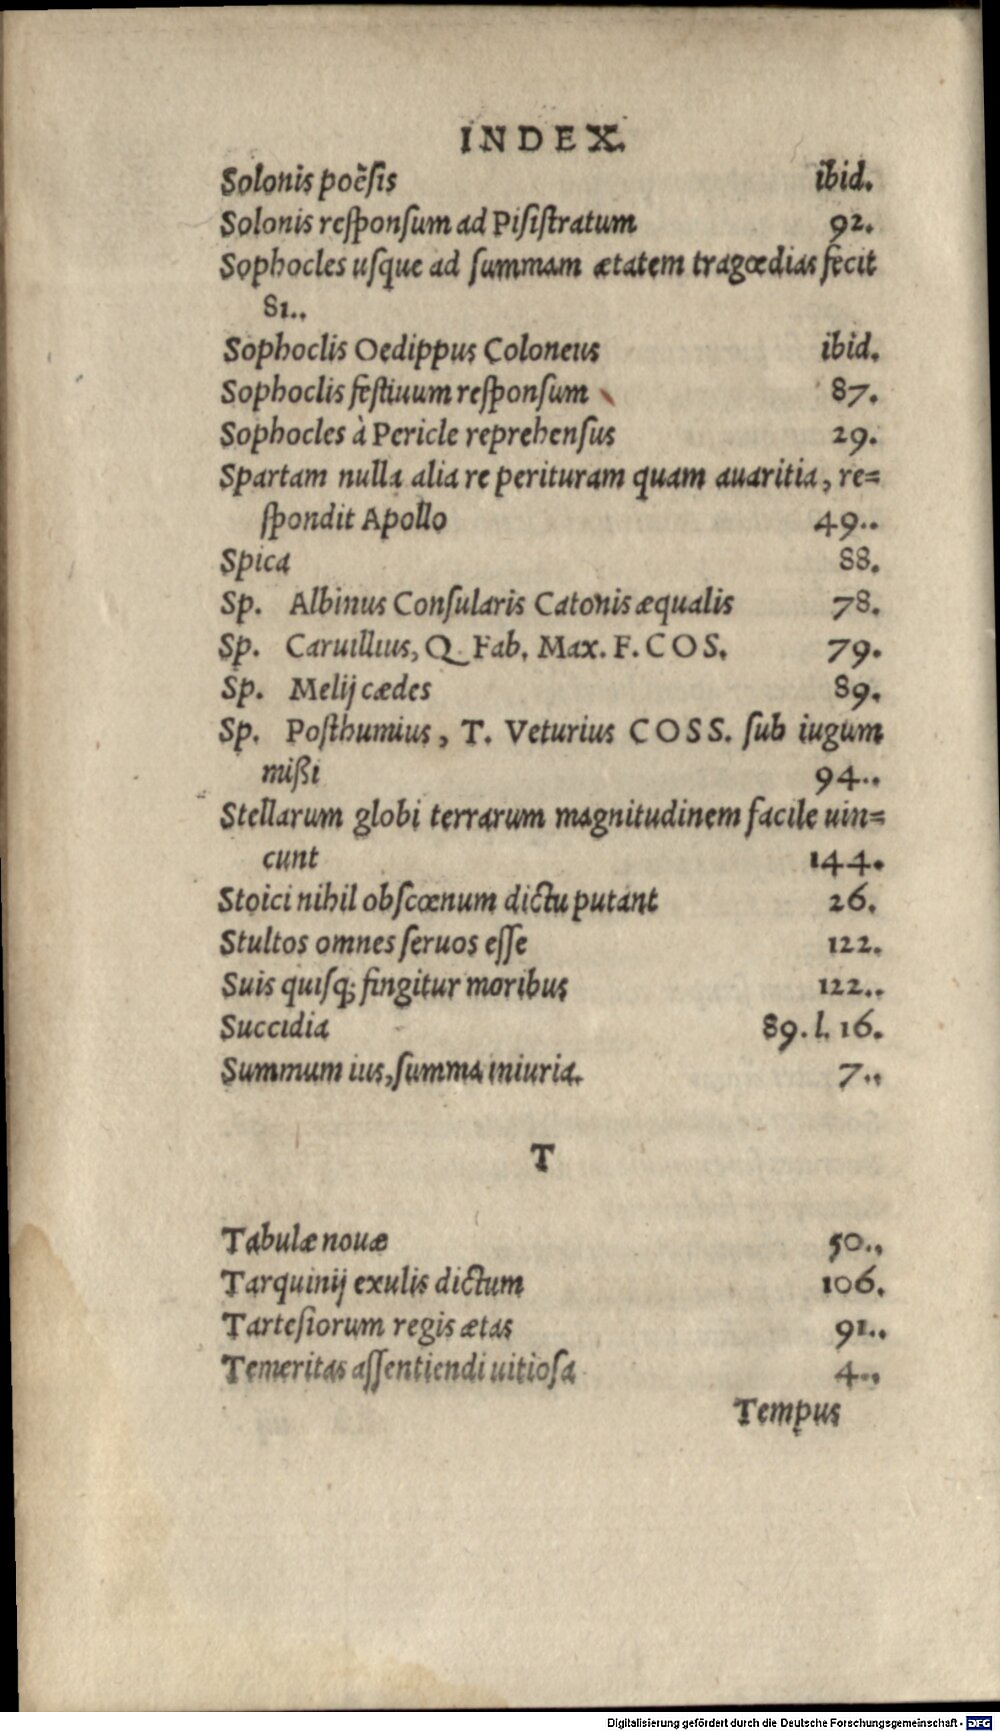 INDEX.
Solonis poësis ibid.
Solonis reſponſum ad Piſiſtratum 92.
Sophocles uſque ad ſummam ætatem tragœdias fecit
81..
Sophoclis Oedippus Coloneus ibid.
Sophoclis feſtiuum reſponſum 87.
Sophocles à Pericle reprehenſus 29.
Spartam nulla alia re perituram quam auaritia, re=
ſpondit Apollo 49..
Spica 88.
Sp. Albinus Conſularis Catonis æqualis 78.
Sp. Caruilius, Q. Fab. Max. F. COS. 79.
Sp. Melij cædes 89.
Sp. Poſthumius, T. Veturius COSS. ſub iugum
mißi 94..
Stellarum globi terrarum magnitudinem facile uin=
cunt 144.
Stoici nihil obſcœnum dictu putant 26.
Stultos omnes ſeruos eſſe 122.
Suis quiſq; fingitur moribus 122..
Succidia 89. l. 16.
Summum ius, ſumma iniuria. 7..
T
Tabulæ nouæ 50..
Tarquinij exulis dictum 106.
Tarteſiorum regis ætas 91..
Temeritas aſſentiendi uitioſa 4..
Tempus
Digitalisierung gefördert durch die Deutsche Forschungsgemeinschaft - DFG